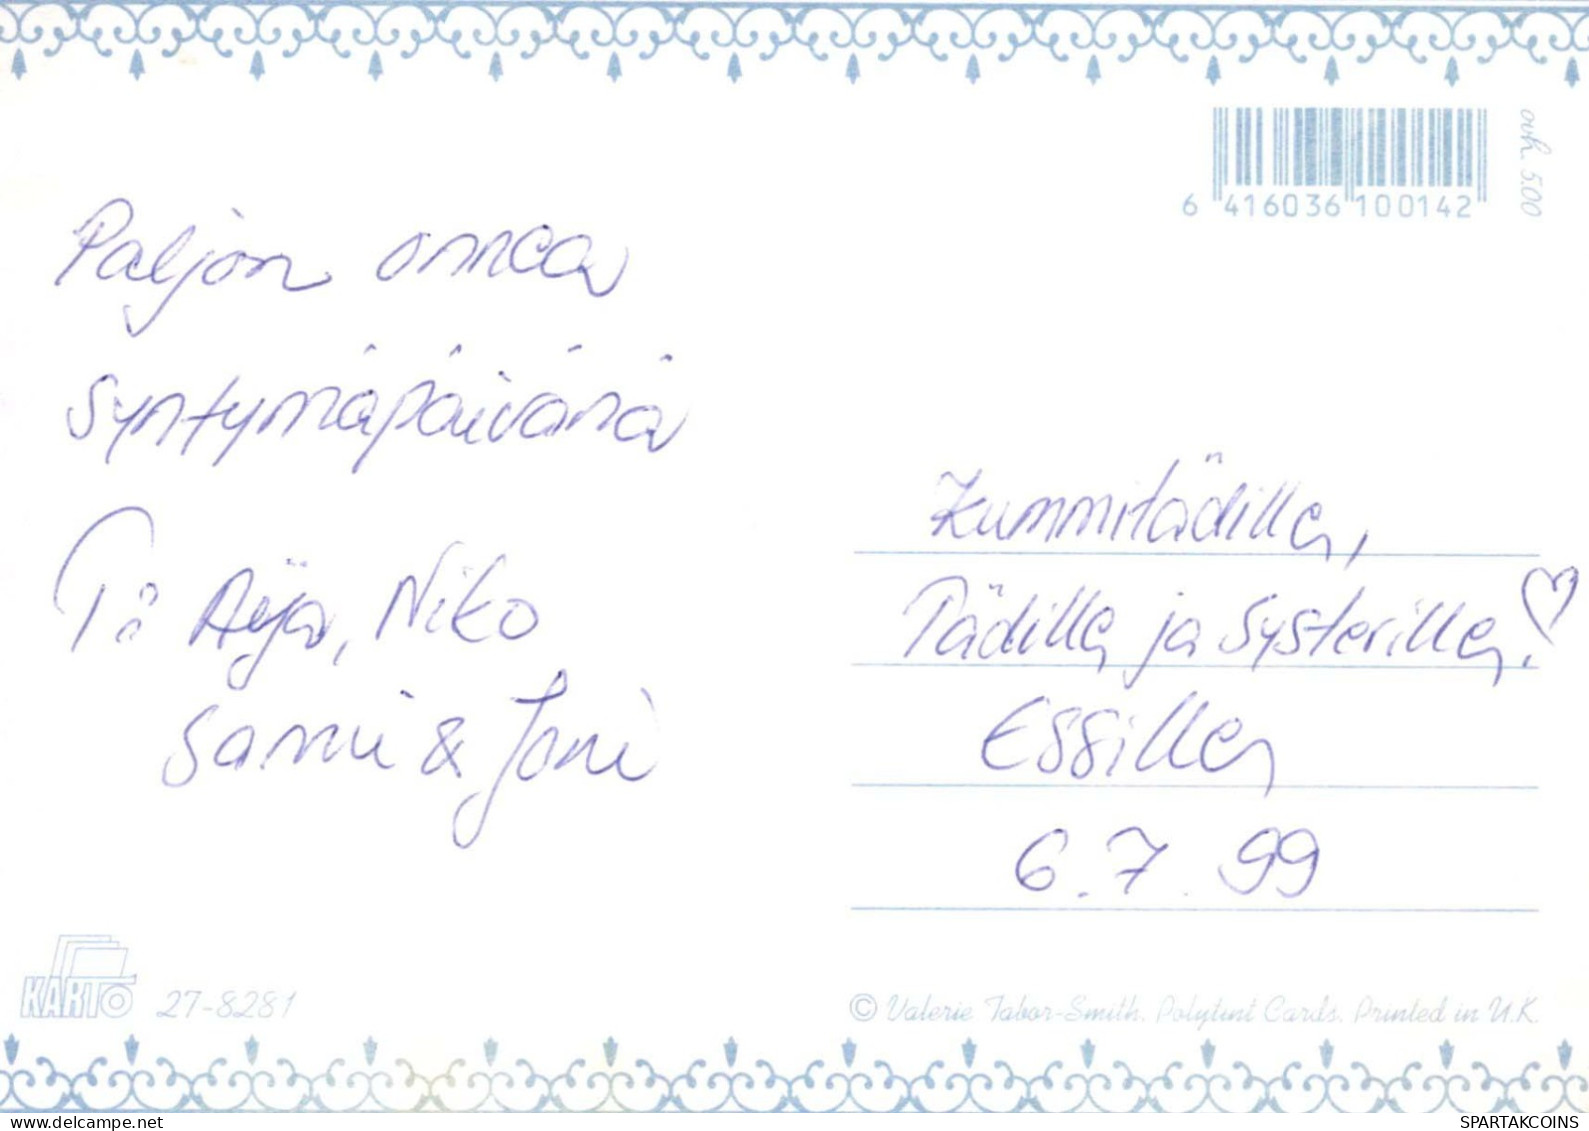 ovh. 5.00
6 416036 100142
Paljon onnea
syntymäpäivänä
T: Aija, Niko
Sami & Joni
Kummitädille,
Tädille ja Systerille!
Essille
6.7.99
KARTO 27-8281
© Valerie Tabor-Smith. Polytint Cards. Printed in U.K.
delcampe.net
SPARTAKCOINS